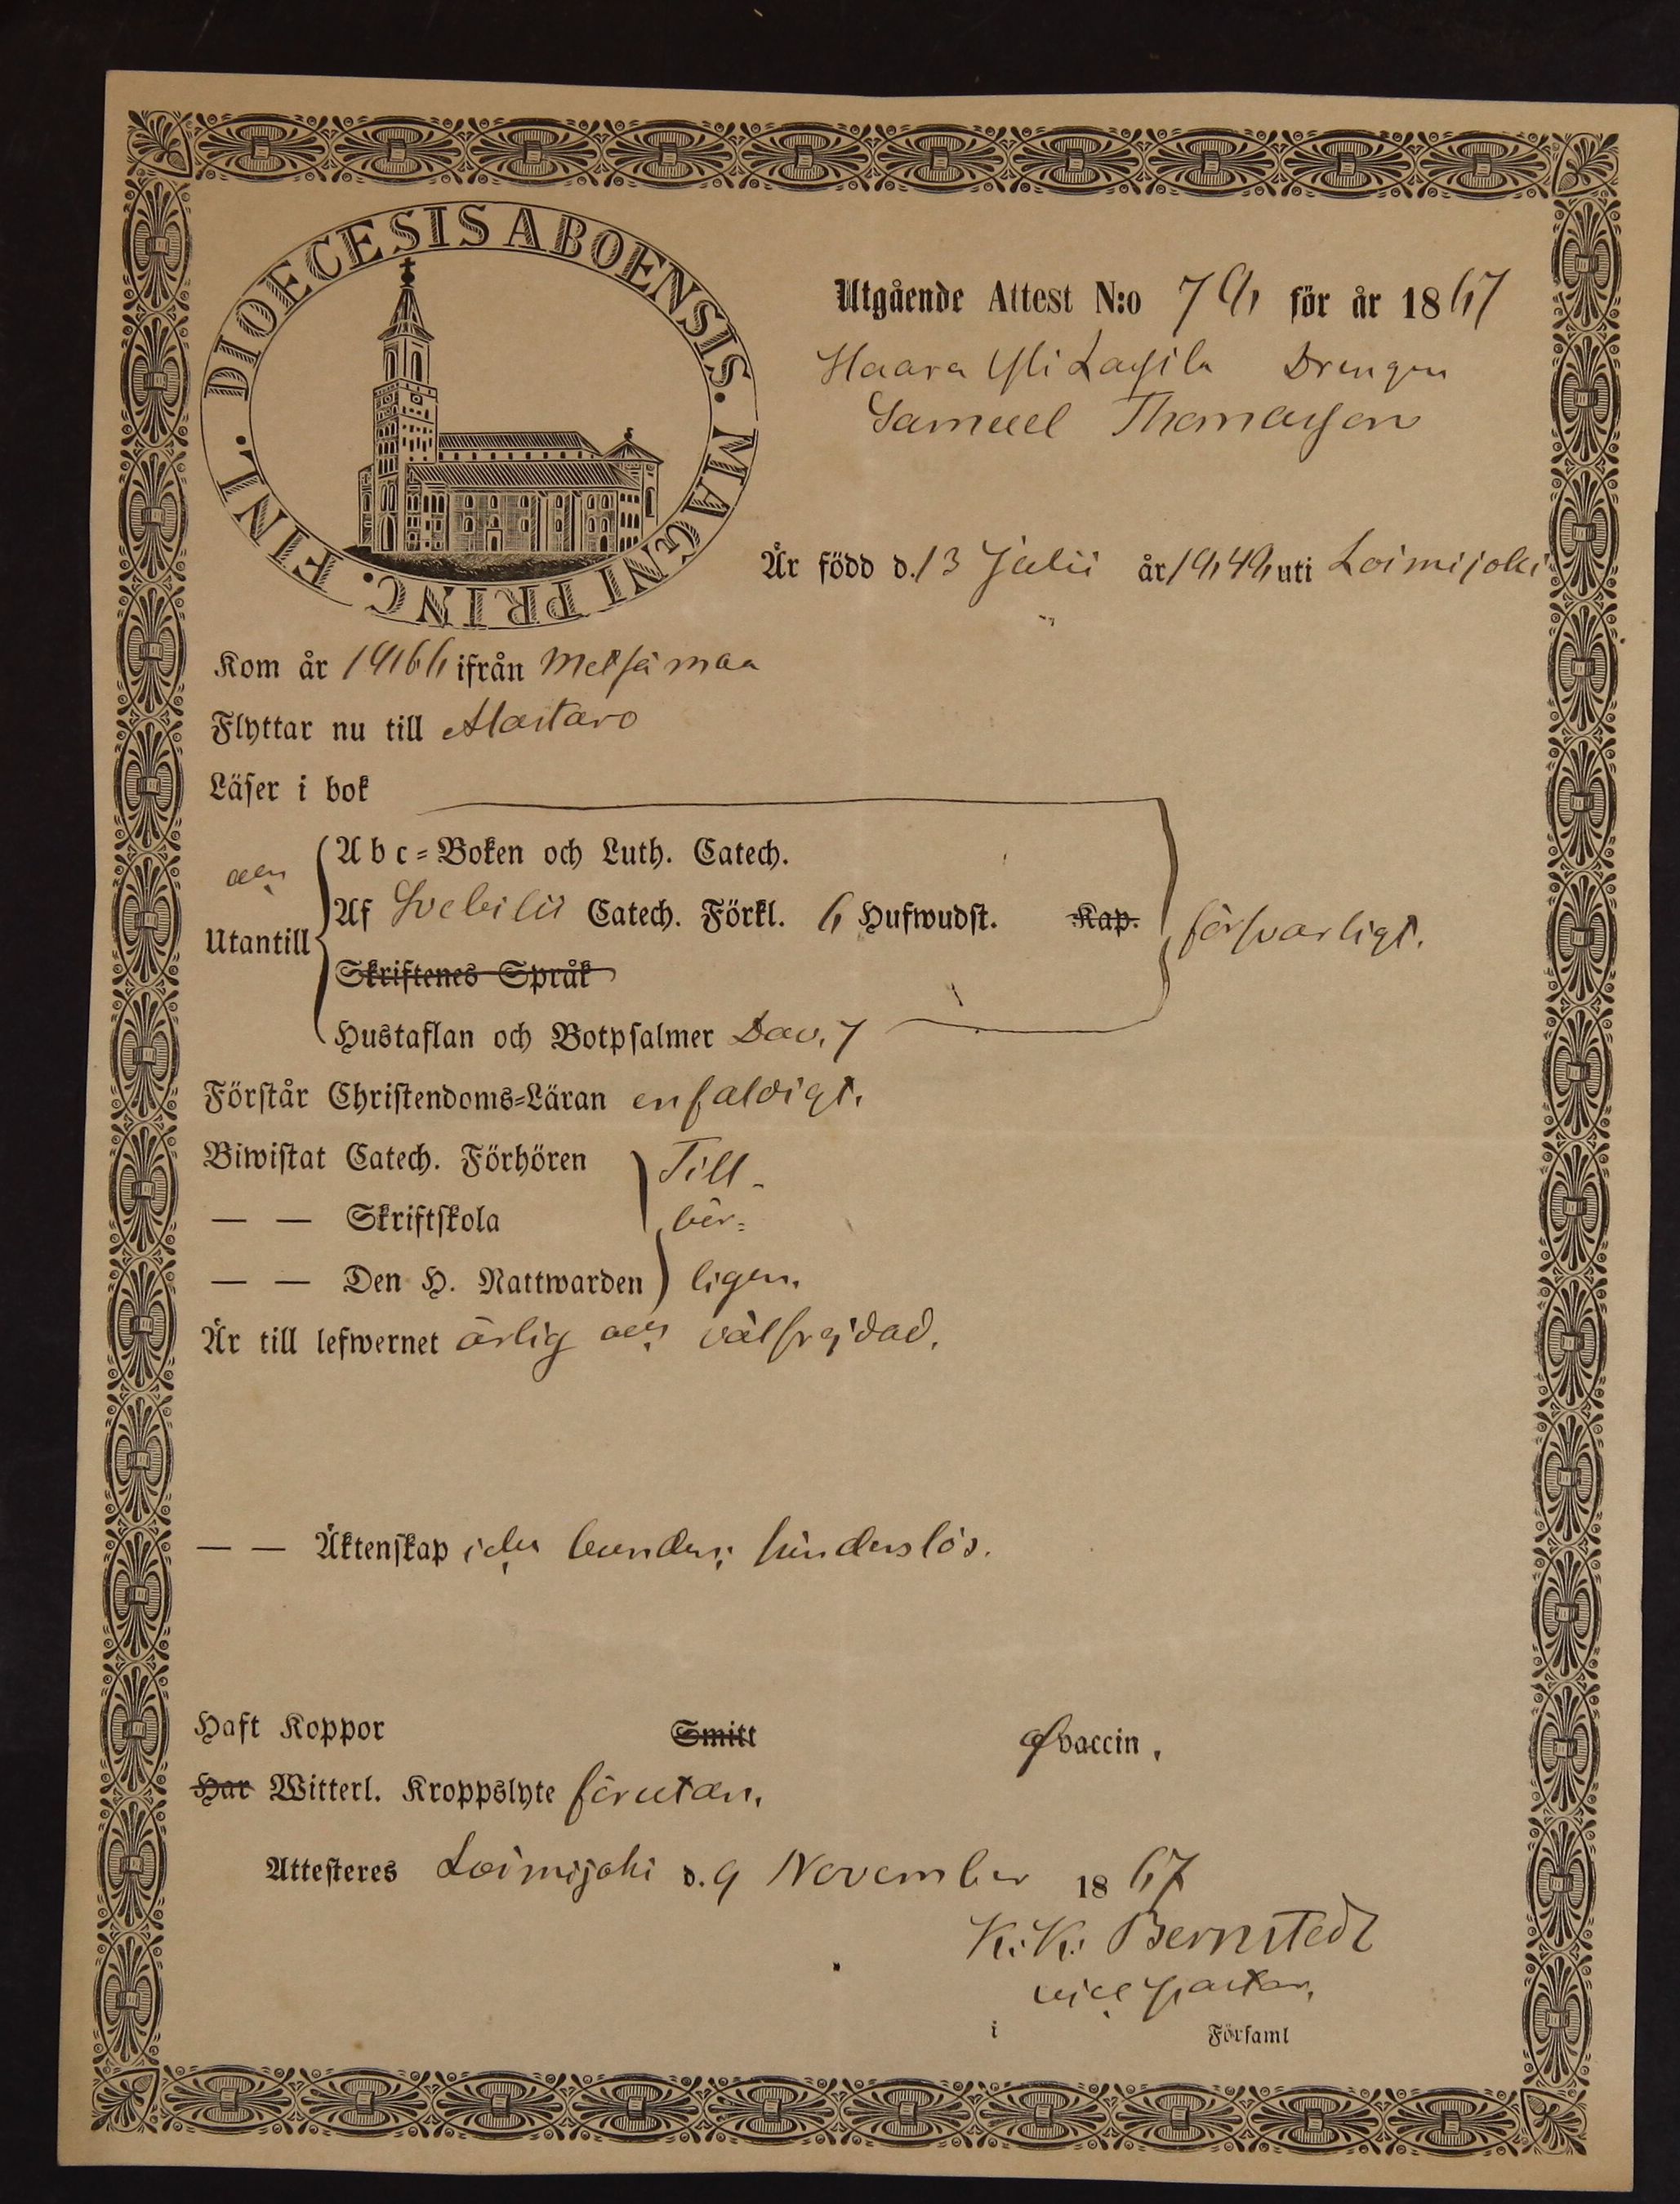 DIOECESIS ABOENSIS. MAGNI PRINC. FINL.
Utgående Attest N:o 78 för år 1867
Haara Yli Lassila Drengen
Samuel Thomasson
Är född d. 13 Julii år 1848 uti Loimijoki
Kom år 1866 ifrån Metsämaa
Flyttar nu till Alastaro
Läser i bok
Abc-Boken och Luth. Catech.
och
Utantill
Af Svebilii Catech. Förkl. 6 Hufwudst. Kap. försvarligt.
Skriftenes Språk
Hustaflan och Botpsalmer Dav. 7
Förstår Christendoms-Läran enfaldigt.
Biwistat Catech. Förhören Till-
— — Skriftskola bör-
— — Den H. Nattwarden ligen.
Är till lefwernet ärlig och välfrejdad.
— — Äktenskap icke bunden; hinderslös.
Haft Koppor Smitt vaccin.
Har Witterl. Kroppslyte förutan.
Attesteres Loimijoki d. 9 November 1867
K. K. Bernstedt
vice pastor,
i Församl